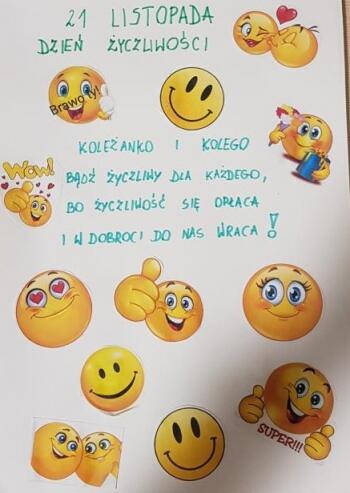 21 LISTOPADA
DZIEŃ ŻYCZLIWOŚCI
Brawo ty!
KOLEŻANKO I KOLEGO
Wow!
BĄDŹ ŻYCZLIWY DLA KAŻDEGO,
BO ŻYCZLIWOŚĆ SIĘ OPŁACA
I W DOBROCI DO NAS WRACA!
SUPER!!!